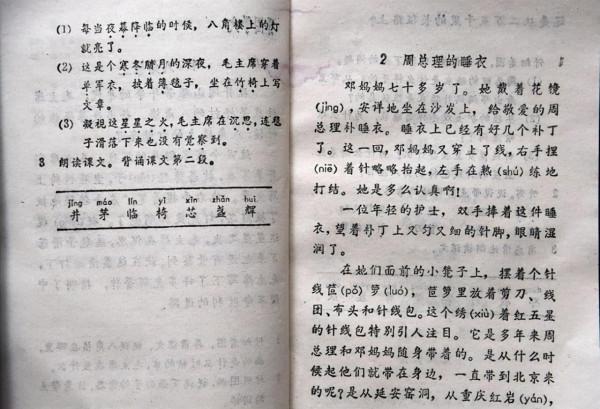 (1) 每当夜幕降临的时候，八角楼上的灯
就亮了。
(2) 这是个寒冬腊月的深夜，毛主席穿着
单军衣，披着薄毯子，坐在竹椅上写
文章。
(3) 凝视这星星之火，毛主席在沉思，连毯
子滑落下来也没有觉察到。
3 朗读课文。背诵课文第二段。
jǐng máo lín yǐ xīn zhǎn huī
井 茅 临 椅 芯 盏 辉
2 周总理的睡衣
邓妈妈七十多岁了。她戴着花镜
(jìng)，安详地坐在沙发上，给敬爱的周
总理补睡衣。睡衣上已经有好几个补丁
了。这一回，邓妈妈又穿上了线，右手捏
(niē)着针略略抬起，左手在熟(shú)练地
打结。她是多么认真啊！
一位年轻的护士，双手捧着这件睡
衣，望着补丁上又匀又细的针脚，眼睛湿
润了。
在她们面前的小凳子上，摆着个针
线笸(pǒ)箩(luó)，笸箩里放着剪刀、线
团、布头和针线包。这个绣(xiù)着红五星
的针线包特别引人注目。它是多年来周
总理和邓妈妈随身带着的。是从什么时
候起他们就带在身边，一直带到北京来
的呢？是从延安窑洞，从重庆红岩(yán)，